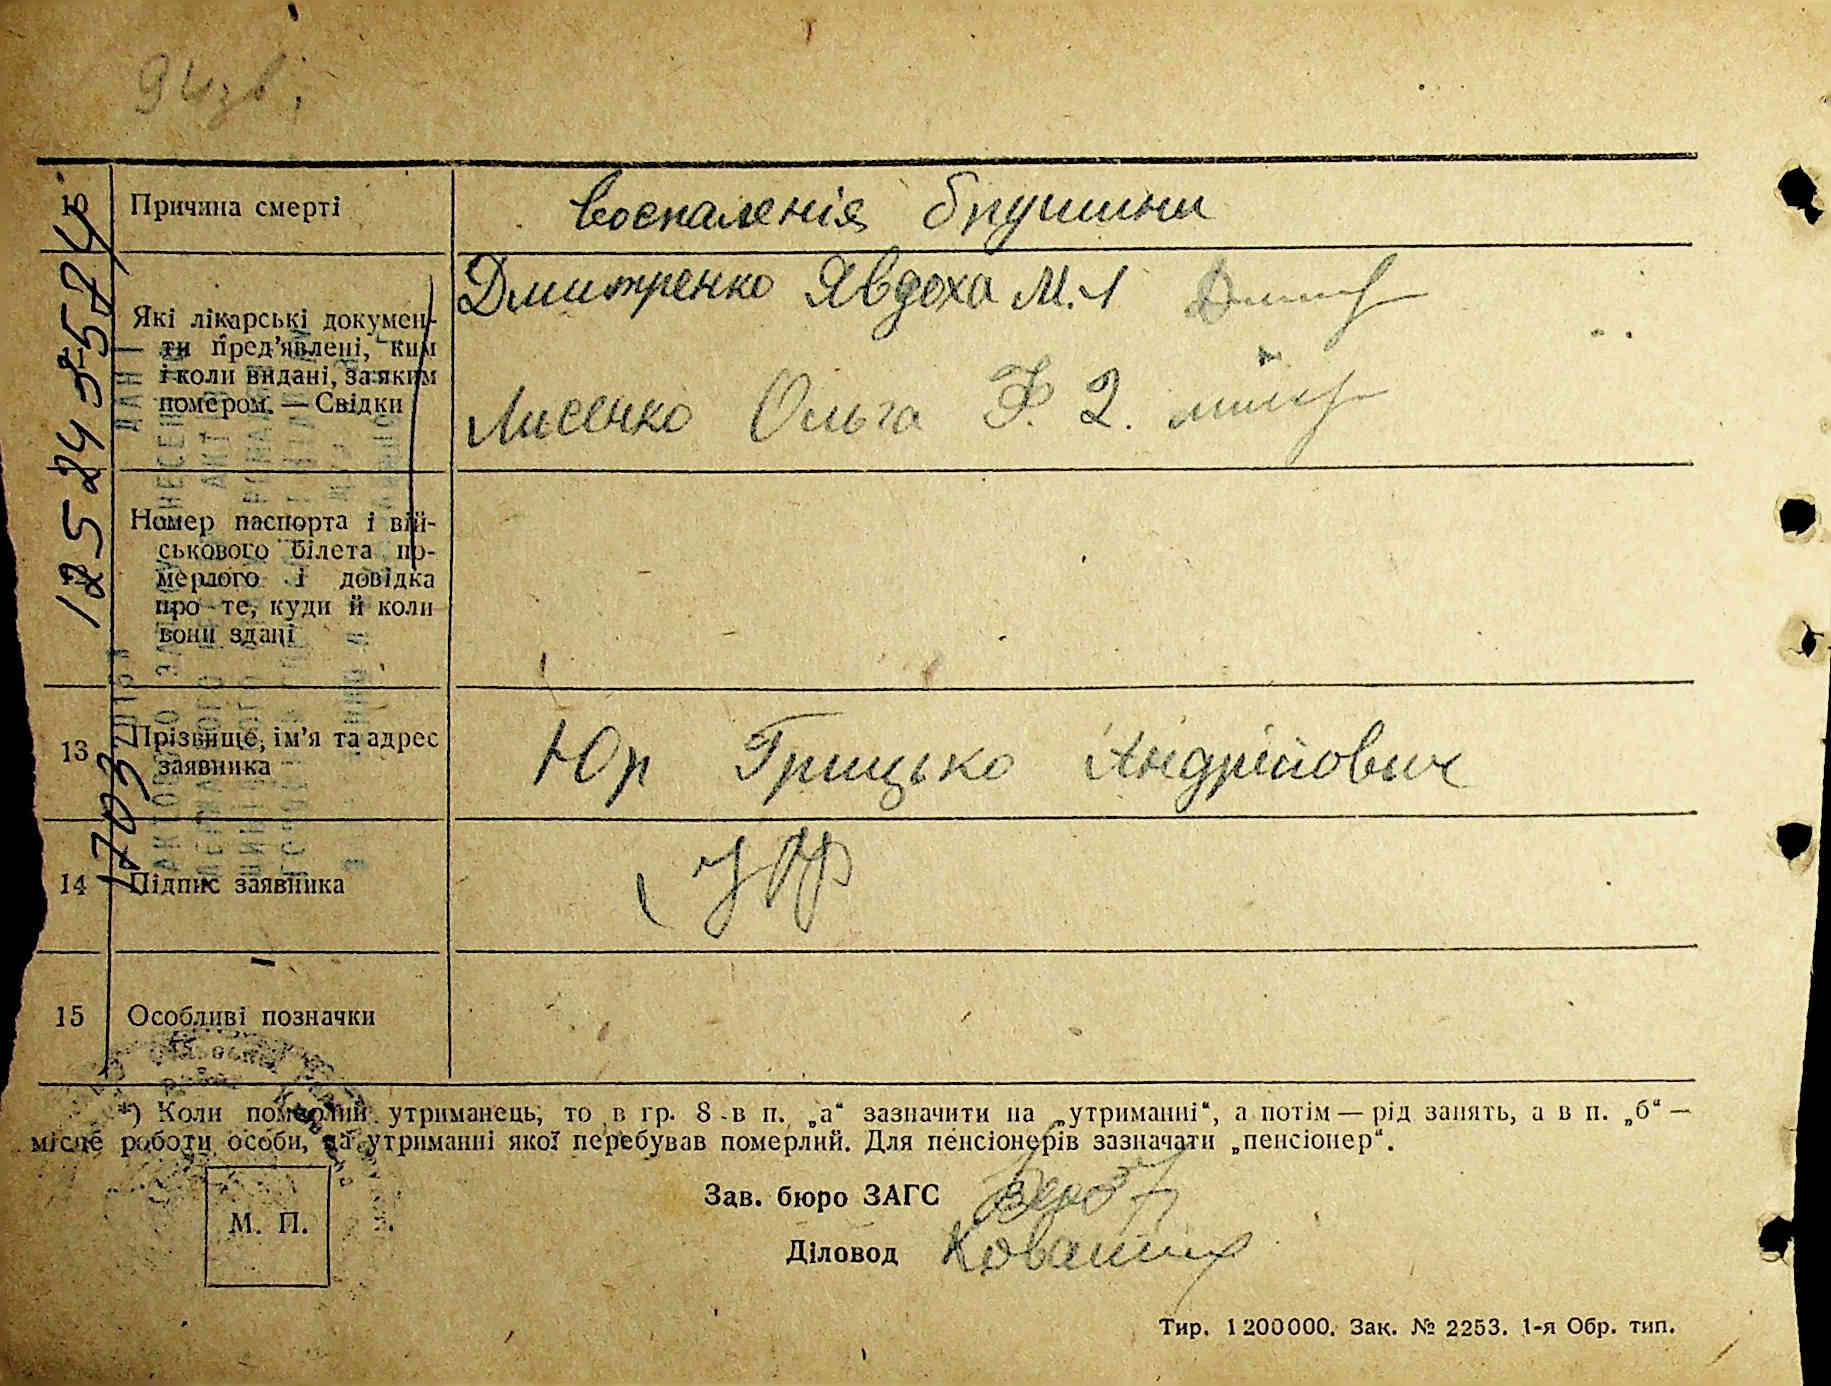 10 Причина смерті воспаленія брушини
Які лікарські докумен-
ти пред’явлені, ким
і коли видані, за яким
помером. — Свідки
Дмитренко Явдоха М. 1
Лисенко Ольга Ф. 2.
Номер паспорта і вій-
ськового білета по-
мерлого і довідка
про те, куди й коли
вони здані
13 Прізвище, ім’я та адрес
заявника
Юр Грицько Андрійович
14 Підпис заявника
15 Особливі позначки
*) Коли померлий утриманець, то в гр. 8 в п. „а“ зазначити на „утриманні“, а потім — рід занять, а в п. „б“ —
місце роботи особи, на утриманні якої перебував померлий. Для пенсіонерів зазначати „пенсіонер“.
М. П.
Зав. бюро ЗАГС
Діловод
Тир. 1 200 000. Зак. № 2253. 1-я Обр. тип.
1703